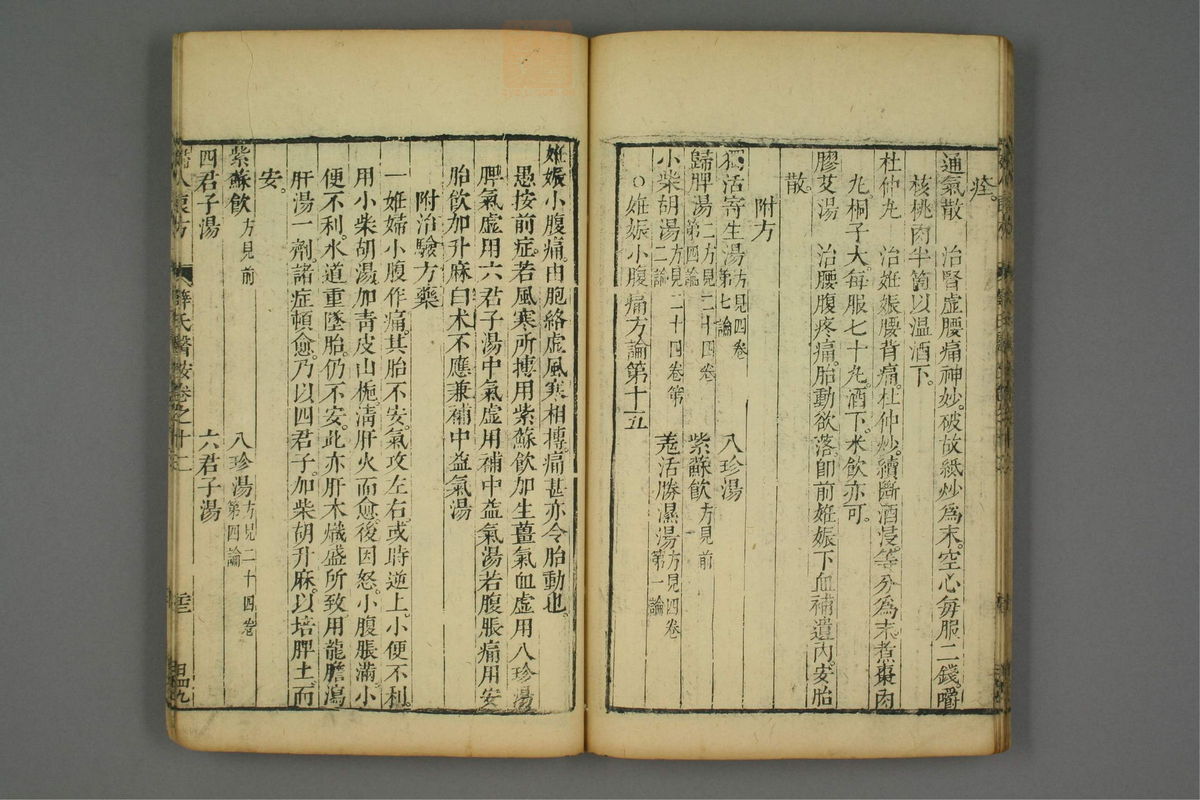 痊。
通氣散　治腎虛腰痛神妙。破故紙炒為末。空心每服二錢。嚼
核桃肉半箇以温酒下。
杜仲丸　治姙娠腰背痛。杜仲炒。續斷酒浸。等分為末。煮棗肉
丸桐子大。每服七十丸。酒下。米飲亦可。
膠艾湯　治腰腹疼痛。胎動欲落。即前姙娠下血補遺內。安胎
散。
附方
獨活寄生湯方見四卷第七論　八珍湯
歸脾湯二方見二十四卷第四論　紫蘇飲方見前
小柴胡湯方見二十四卷第二論　羌活勝濕湯方見四卷第一論
○姙娠小腹痛方論第十五
姙娠小腹痛。由胞絡虛風寒相搏。痛甚亦令胎動也。
愚按前症。若風寒所搏用紫蘇飲加生薑氣血虛用八珍湯
脾氣虛用六君子湯中氣虛用補中益氣湯若腹脹痛用安
胎飲加升麻白术不應兼補中益氣湯
附治驗方藥
一姙婦小腹作痛。其胎不安。氣攻左右。或時逆上。小便不利。
用小柴胡湯。加青皮山梔清肝火而愈。後因怒。小腹脹滿小
便不利。水道重墜胎。仍不安。此亦肝木熾盛所致用龍膽瀉
肝湯一劑。諸症頓愈。乃以四君子。加柴胡升麻。以培脾土。而
安。
紫蘇飲方見前　八珍湯方見二十四卷第四論
四君子湯　六君子湯
婦人良方　薛氏醫按卷之十二